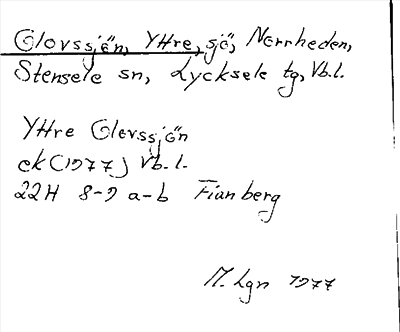 Olovssjön, Yttre, sjö, Norrheden,
Stensele sn, Lycksele tg, Vb.l.
Yttre Olovssjön
ek (1977) Vb.l.
22H 8-9 a-b Fianberg
M. Lgn 1977